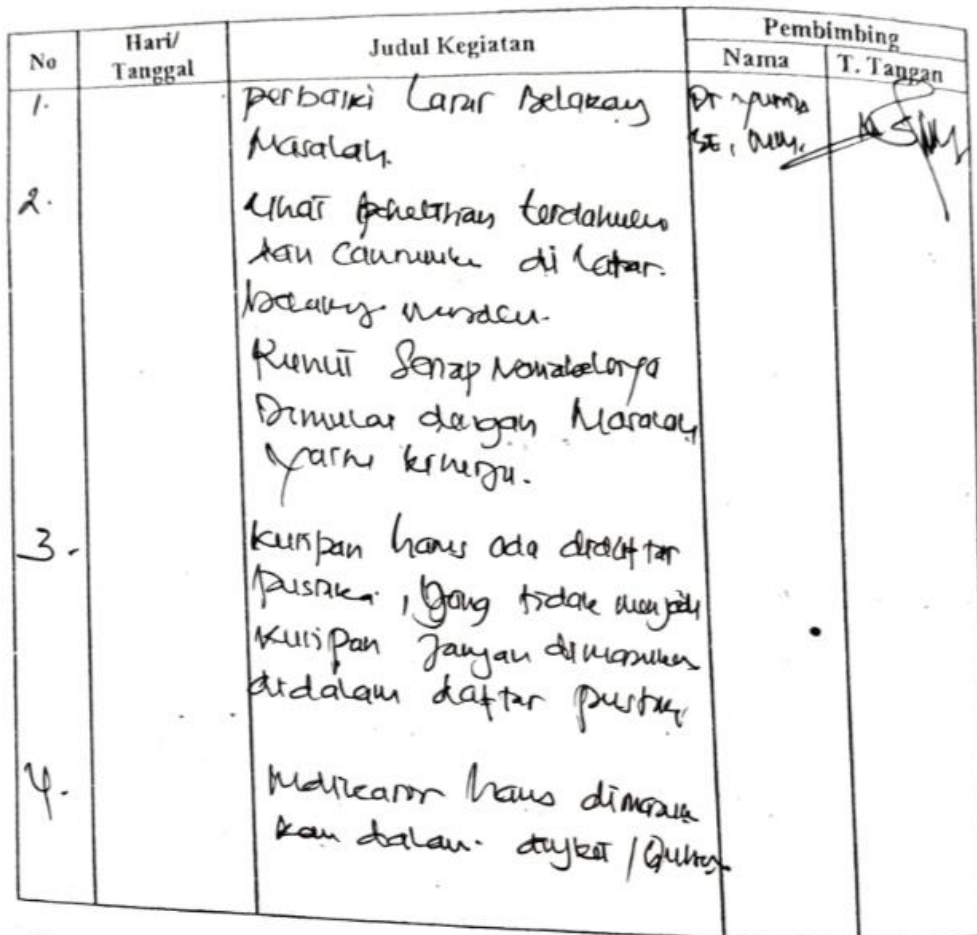 No
Hari/
Tanggal
Judul Kegiatan
Pembimbing
Nama
T. Tangan
1.
perbaiki Latar Belakang
Masalah.
Dr
SE, MM.
2.
Lihat penelitian terdahulu
dan cantumkan di latar
belakang masalah.
Runut Setiap
Dimulai dengan Masalah
yaitu kinerja.
3.
Kutipan harus ada didaftar
pustaka, yang tidak menjadi
kutipan Jangan dimasukan
didalam daftar pustaka
4.
Indikator harus dimasuk
kan dalam angket /